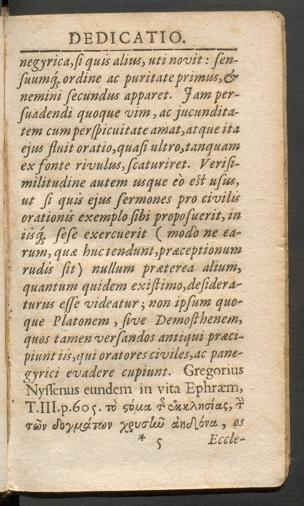 DEDICATIO.
negyrica, si quis alius, uti novit: sen-
suumq́; ordine ac puritate primus, &
nemini secundus apparet. Jam per-
suadendi quoque vim, ac jucundita-
tem cum perspicuitate amat, atque ita
ejus fluit oratio, quasi ultro, tanquam
ex fonte rivulus, scaturiret. Verisi-
militudine autem usque eò est usus,
ut si quis ejus sermones pro civilis
orationis exemplo sibi proposuerit, in
iisq́; sese exercuerit ( modò ne ea-
rum, quæ huc tendunt, præceptionum
rudis sit) nullum præterea alium,
quantum quidem existimo, desidera-
turus esse videatur; non ipsum quo-
que Platonem, sive Demosthenem,
quos tamen versandos antiqui præci-
piunt iis, qui oratores civiles, ac pane-
gyrici evadere cupiunt. Gregorius
Nyssenus eundem in vita Ephræm,
T.III.p.605. τὸ τόμα τ̃ ἐκκλησίας, τ̃
τῶν δογμάτων χρυσῆν ἀηδόνα, os
* 5 Eccle-